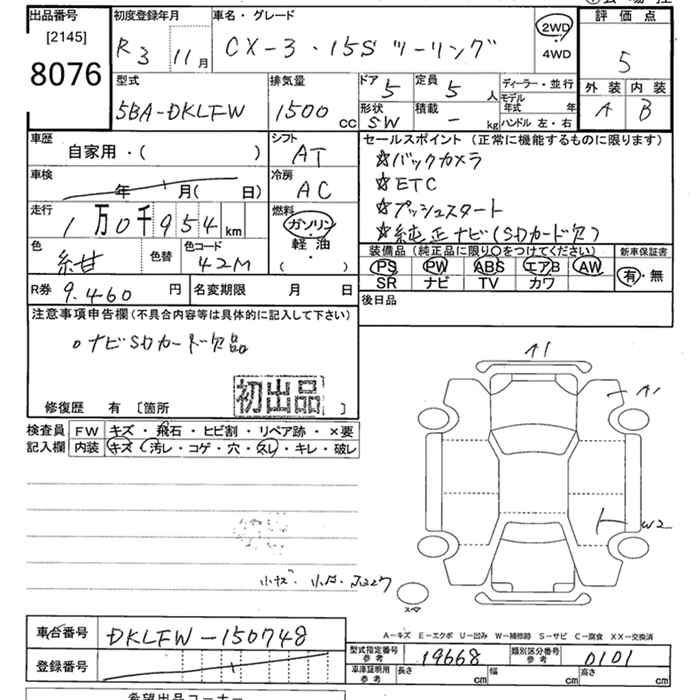 出品番号 初度登録年月 車名・グレード 評価点
[2145]
8076 R3 11月 CX-3・15S ツーリング 2WD 4WD 5
型式 排気量 ドア 5 定員 5人 ディーラー・並行 外装 内装
5BA-DKLFW 1500cc 形状 SW 積載 -kg モデル年式 年 A B
ハンドル 左・右
車歴 シフト セールスポイント(正常に機能するものに限ります)
自家用・( ) AT ☆バックカメラ
車検 冷房 ☆ETC
年 月( 日) AC ☆プッシュスタート
走行 燃料 ☆純正ナビ(SDカード欠)
1万0千954km ガソリン
軽油
( ・ )
色 紺 色替 色コード 42M
装備品(純正品に限り〇をつけてください) 新車保証書
PS PW ABS エアB AW 有・無
SR ナビ TV カワ
R券 9.460円 名変期限 月 日 後日品
注意事項申告欄(不具合内容等は具体的に記入して下さい)
。ナビSDカード欠品
初出品
修復歴 有 [箇所 ]
↑1
A1
W2
検査員 FW キズ・飛石・ヒビ割・リペア跡・×要
記入欄 内装 キズ・汚レ・コゲ・穴・スレ・キレ・破レ
小キズ・小凹・
スペア
A-キズ E-エクボ U-凹み W-補修跡 S-サビ C-腐食 XX-交換済
車台番号 DKLFW-150748
型式指定番号 参考 19668 類別区分番号 参考 0101
登録番号
車庫証明用 参考 長さ cm 幅 cm 高さ cm
希望出品コーナー